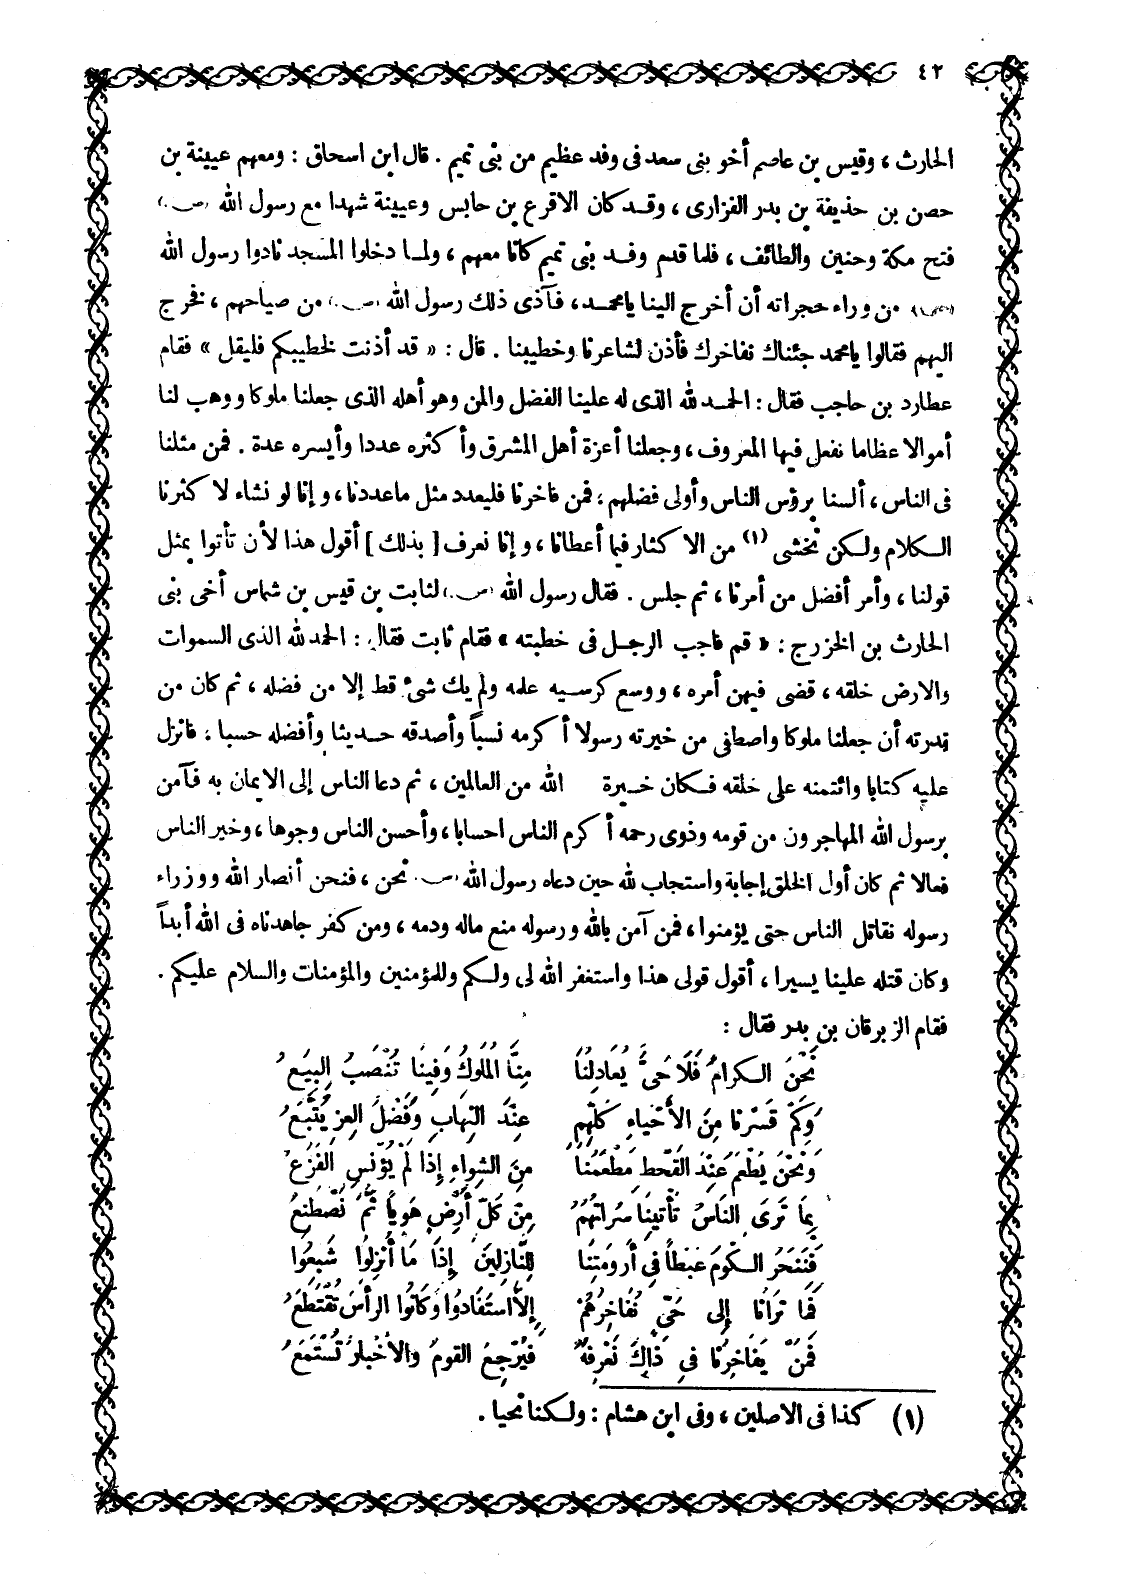 ٤٢
الحارث ، وقيس بن عاصم أخو بنى سعد فى وفد عظيم من بنى تميم . قال ابن اسحاق : ومعهم عيينة بن
حصن بن حذيفة بن بدر الفزارى ، وقد كان الاقرع بن حابس وعيينة شهدا مع رسول الله (ص.)
فتح مكة وحنين والطائف ، فلما قدم وفد بنى تميم كانا معهم ، ولما دخلوا المسجد نادوا رسول الله
(ص) من وراء حجراته أن أخرج الينا يامحمد ، فآذى ذلك رسول الله (ص.) من صياحهم ، فخرج
اليهم فقالوا يامحمد جئناك نفاخرك فأذن لشاعرنا وخطيبنا . قال : « قد أذنت لخطيبكم فليقل » فقام
عطارد بن حاجب فقال : الحمد لله الذى له علينا الفضل والمن وهو أهله الذى جعلنا ملوكا ووهب لنا
أموالا عظاما نفعل فيها المعروف ، وجعلنا أعزة أهل المشرق وأكثره عددا وأيسره عدة . فمن مثلنا
فى الناس ، ألسنا برؤس الناس وأولى فضلهم ؛ فمن فاخرنا فليعدد مثل ماعددنا ، وإنا لو نشاء لاكثرنا
الكلام ولكن نخشى (١) من الاكثار فيما أعطانا ، وإنا نعرف [ بذلك ] أقول هذا لأن تأتوا بمثل
قولنا ، وأمر أفضل من أمرنا ، ثم جلس . فقال رسول الله (ص.) لثابت بن قيس بن شماس أخى بنى
الحارث بن الخزرج : « قم فاجب الرجل فى خطبته » فقام ثابت فقال : الحمد لله الذى السموات
والارض خلقه ، قضى فيهن أمره ، ووسع كرسيه علمه ولم يك شئ قط إلا من فضله ، ثم كان من
قدرته أن جعلنا ملوكا واصطفى من خيرته رسولا أكرمه نسباً وأصدقه حديثا وأفضله حسبا ؛ فانزل
عليه كتابا وائتمنه على خلقه فكان خيرة الله من العالمين ، ثم دعا الناس إلى الايمان به فآمن
برسول الله المهاجرون من قومه وذوى رحمه أكرم الناس احسابا ، وأحسن الناس وجوها ، وخير الناس
فعالا ثم كان أول الخلق إجابة واستجاب لله حين دعاه رسول الله (ص.) نحن ، فنحن أنصار الله ووزراء
رسوله نقاتل الناس حتى يؤمنوا ، فمن آمن بالله ورسوله منع ماله ودمه ، ومن كفر جاهدناه فى الله أبداً
وكان قتله علينا يسيرا ، أقول قولى هذا واستغفر الله لى ولكم وللمؤمنين والمؤمنات والسلام عليكم .
فقام الزبرقان بن بدر فقال :
نَحْنُ الكرامُ فَلَا حَىٌّ يُعَادِلُنَا مِنَّا المُلوكُ وَفِينَا تُنْصَبُ البِيَعُ
وَكَمْ قَسَرْنا مِنَ الأَحْياءِ كُلِّهِمِ عِنْدَ النِّهابِ وَفَضْلُ العِزِّ يُتَّبَعُ
وَنَحْنُ يُطْعِمُ عِنْدَ القَحْطِ مُطْعِمُنا مِنَ الشِّواءِ إِذَا لَمْ يُؤْنَسِ القَزَعُ
بِمَا تَرَى النَّاسُ تَأْتِينَا سَرَاتُهُمُ مِنْ كُلِّ أَرْضٍ هَوِيًّا ثُمَّ نَصْطَنِعُ
فَنَنْحَرُ الكُومَ عَبْطاً فِى أَرُومَتِنَا لِلنَّازِلِينَ إِذَا مَا أُنْزِلُوا شَبِعُوا
فَمَا تَرَانَا إِلى حَىٍّ نُفَاخِرُهُمْ إِلَّا اسْتَفَادُوا وَكَانُوا الرأسَ تُقْتَطَعُ
فَمَنْ يُفَاخِرُنَا فى ذَاكَ نَعْرِفُهُ فَيَرْجِعُ القومُ والأَخْبارُ تُسْتَمَعُ
(١) كذا فى الاصلين ، وفى ابن هشام : ولكنا نحيا .